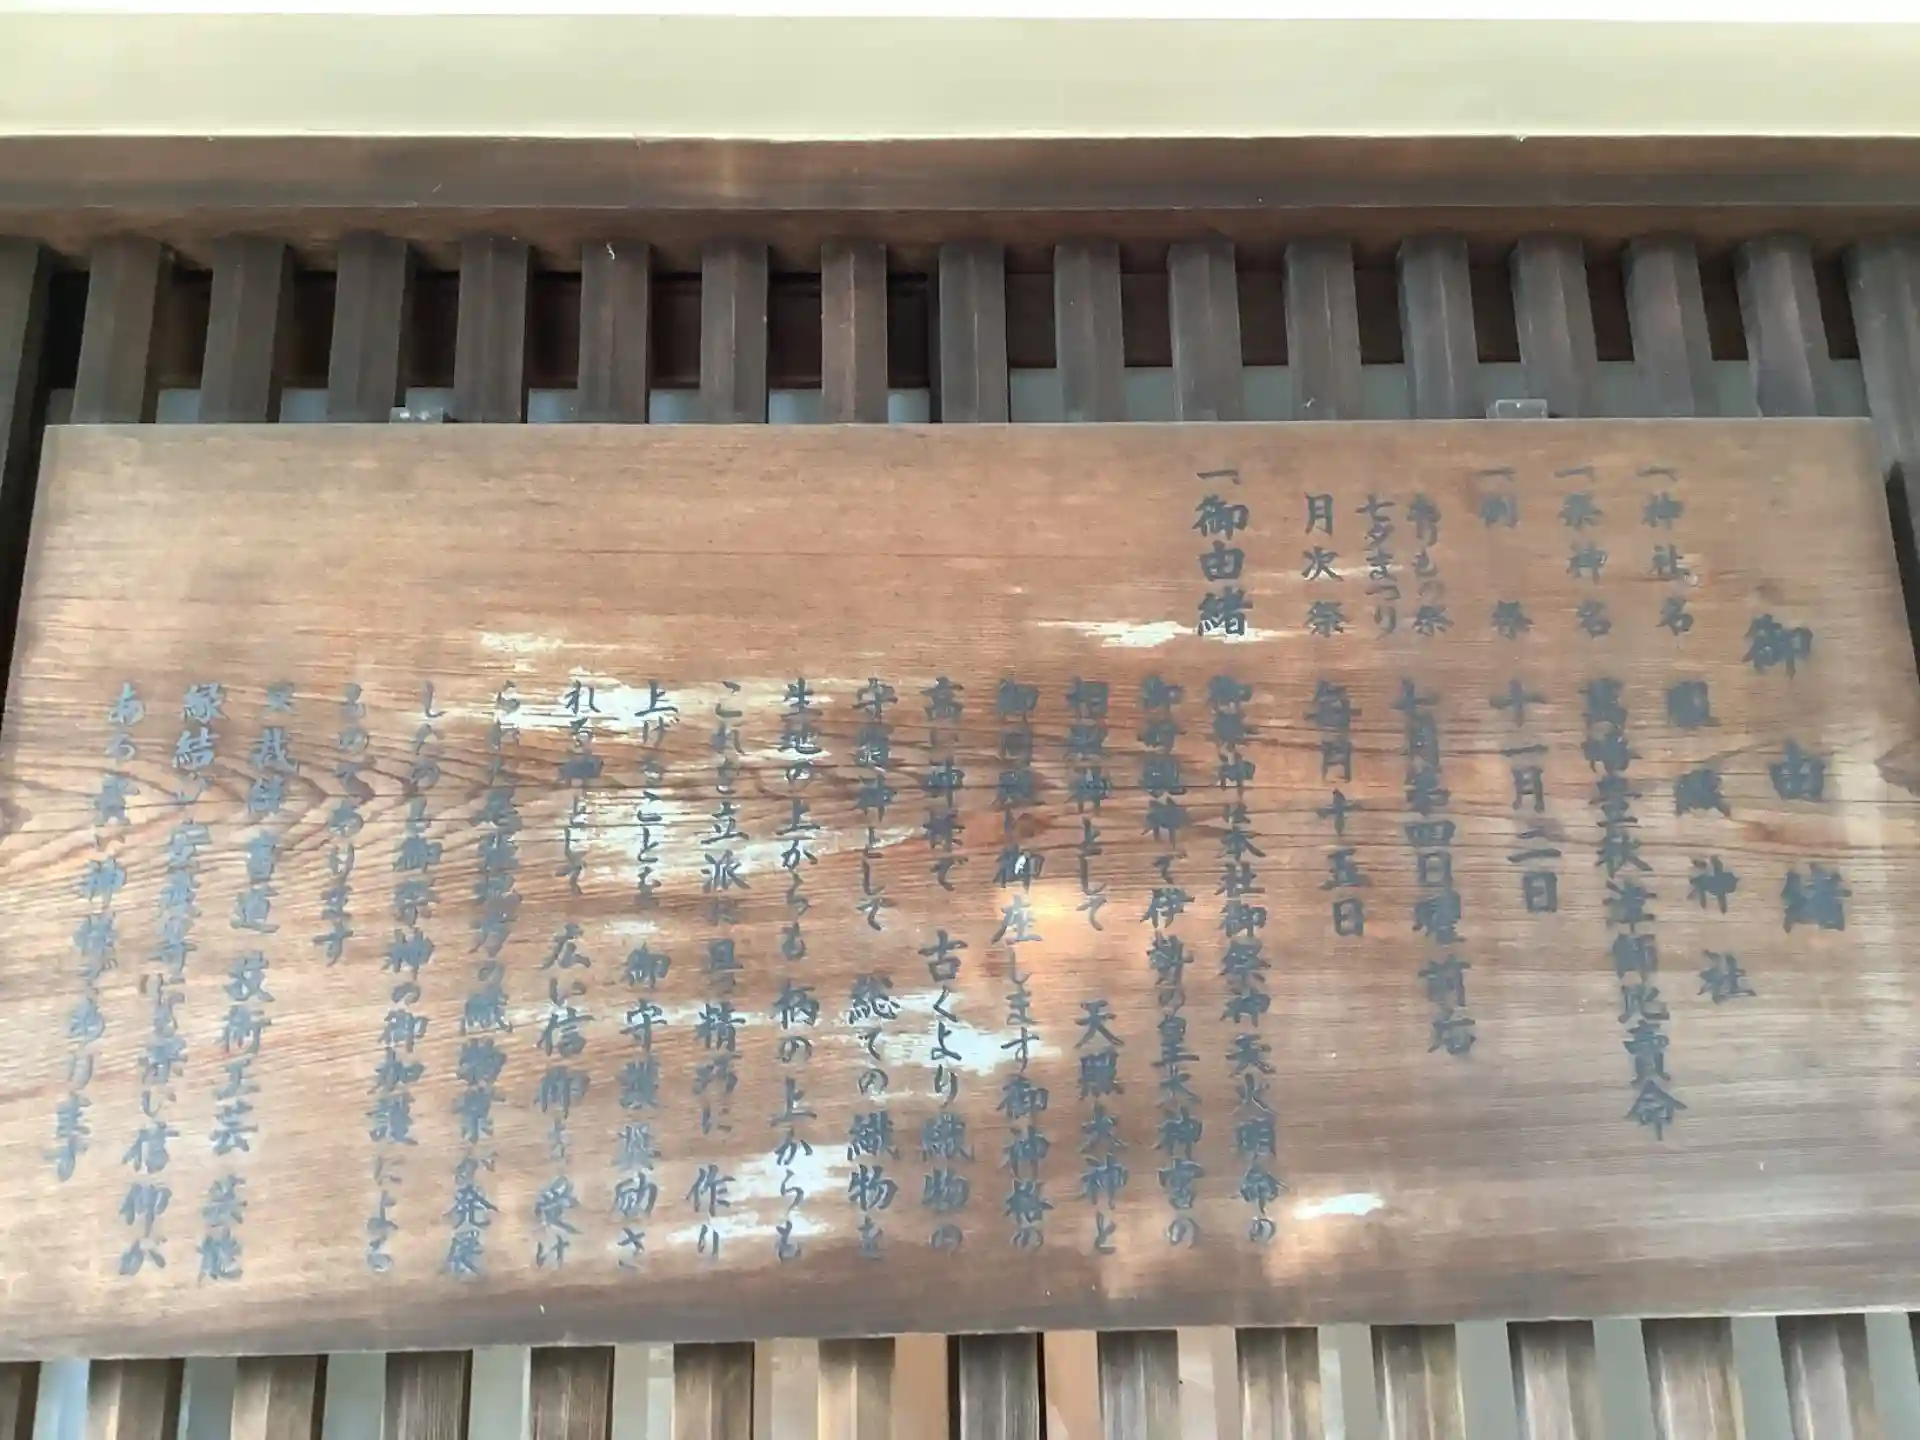 御由緒
一、神社名 服織神社
一、祭神名 萬幡豊秋津師比賣命
一、例祭 十一月二日
おりもの祭
七夕まつり 七月第四日曜前后
月次祭 毎月十五日
一、御由緒 御祭神は本社御祭神天火明命の
御母親神で伊勢の皇大神宮の
相殿神として 天照大神と
御同殿に御座します御神格の
高い神様で 古くより織物の
守護神として 総ての織物を
生地の上からも柄の上からも
これを立派に且つ精巧に 作り
上げることを 御守護奨励さ
れる神として 広い信仰を受け
られた尾張地方の織物業が発展
したのも御祭神の御加護による
ものであります
又裁縫 書道 技術工芸 芸能
縁結び 安産等にも深い信仰が
ある貴い神様であります